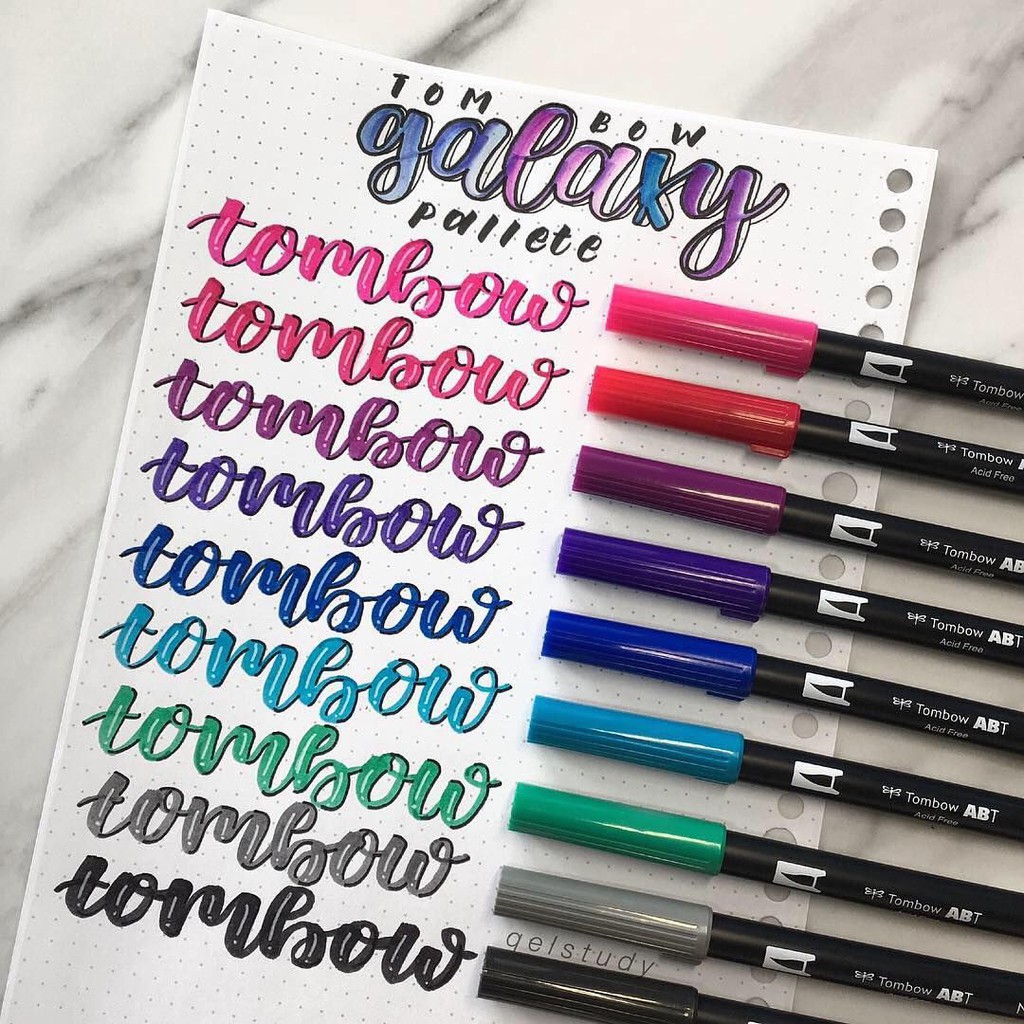 TOM BOW
galaxy
pallete
tombow
tombow
tombow
tombow
tombow
tombow
tombow
tombow
tombow
Tombow
Acid Free
Tombow
Acid Free
Tombow AB
Acid Free
Tombow ABT
Acid Free
Tombow ABT
Acid Free
Tombow ABT
Acid Free
Tombow ABT
Tombow ABT
qelstudy